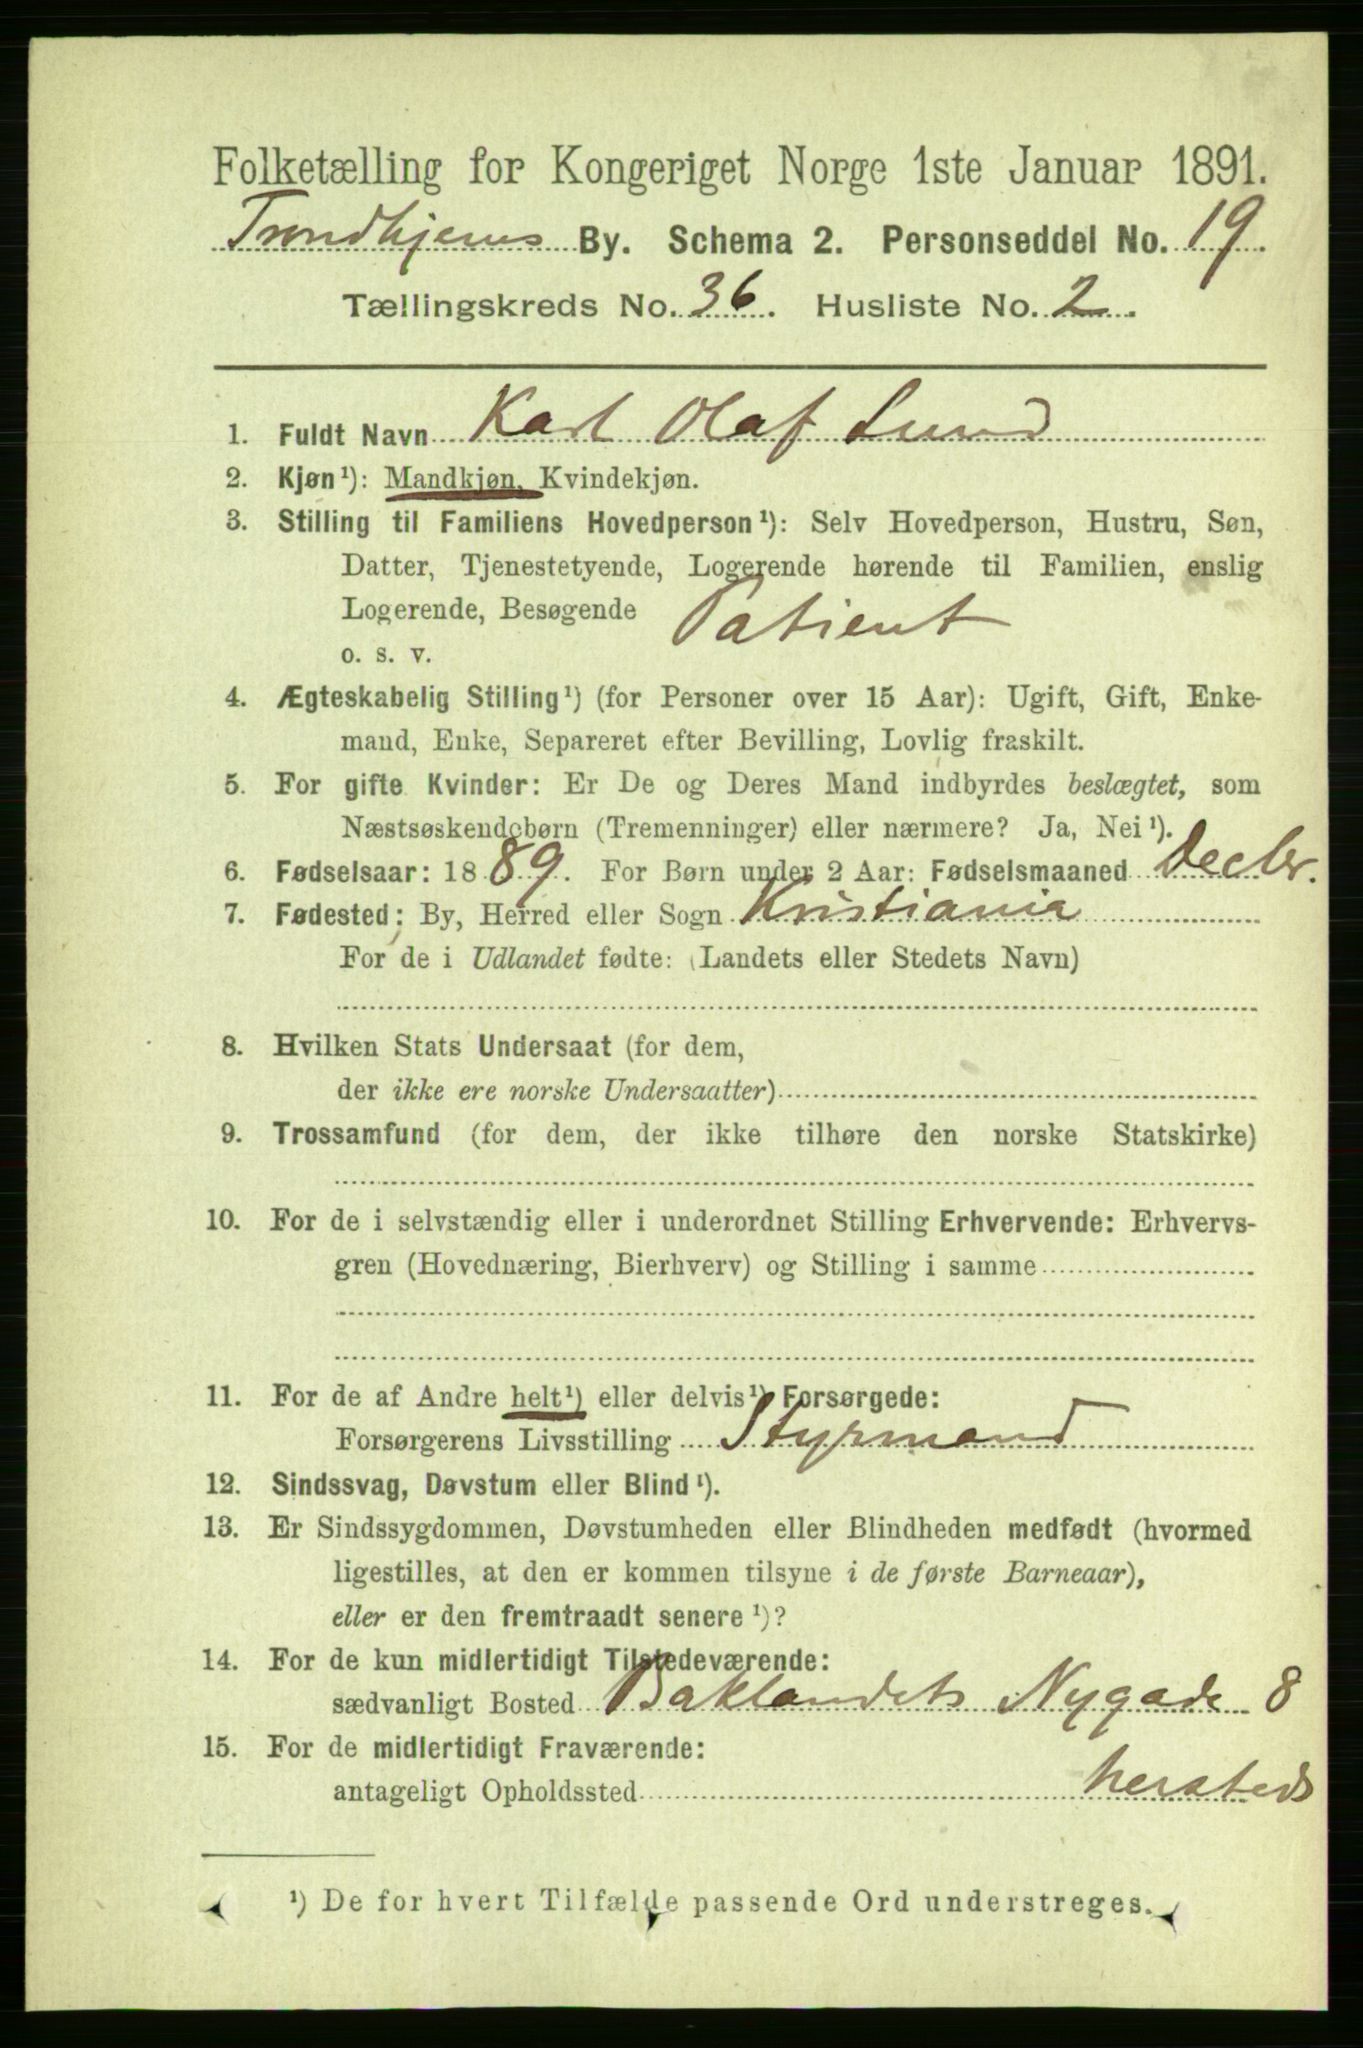 Folketælling for Kongeriget Norge 1ste Januar 1891.
Trondhjems By. Schema 2. Personseddel No. 19.
Tællingskreds No. 36. Husliste No. 2.
1. Fuldt Navn Karl Olaf Lund
2. Kjøn¹): Mandkjøn, Kvindekjøn.
3. Stilling til Familiens Hovedperson¹): Selv Hovedperson, Hustru, Søn,
Datter, Tjenestetyende, Logerende hørende til Familien, enslig
Logerende, Besøgende Patient
o. s. v.
4. Ægteskabelig Stilling¹) (for Personer over 15 Aar): Ugift, Gift, Enke-
mand, Enke, Separeret efter Bevilling, Lovlig fraskilt.
5. For gifte Kvinder: Er De og Deres Mand indbyrdes beslægtet, som
Næstsøskendebørn (Tremenninger) eller nærmere? Ja, Nei¹).
6. Fødselsaar: 1889. For Børn under 2 Aar: Fødselsmaaned Decbr.
7. Fødested: By, Herred eller Sogn Kristiania
For de i Udlandet fødte: (Landets eller Stedets Navn)
8. Hvilken Stats Undersaat (for dem,
der ikke ere norske Undersaatter)
9. Trossamfund (for dem, der ikke tilhøre den norske Statskirke)
10. For de i selvstændig eller i underordnet Stilling Erhvervende: Erhvervs-
gren (Hovednæring, Bierhverv) og Stilling i samme
11. For de af Andre helt¹) eller delvis¹) Forsørgede:
Forsørgerens Livsstilling Styrmand
12. Sindssvag, Døvstum eller Blind¹).
13. Er Sindssygdommen, Døvstumheden eller Blindheden medfødt (hvormed
ligestilles, at den er kommen tilsyne i de første Barneaar),
eller er den fremtraadt senere¹)?
14. For de kun midlertidigt Tilstedeværende:
sædvanligt Bosted Baklandets Nygade 8
15. For de midlertidigt Fraværende:
antageligt Opholdssted hersteds
¹) De for hvert Tilfælde passende Ord understreges.